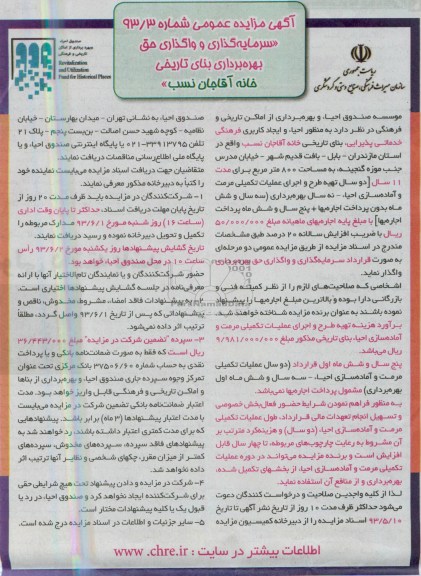 آگهی مزایده عمومی شماره ۹۳/۳
«سرمایه‌گذاری و واگذاری حق
بهره‌برداری بنای تاریخی
خانه آقاجان نسب»
صندوق احیاء و
بهره برداری از اماکن
تاریخی و فرهنگی
Revitalization
and Utilization
Fund for Historical Places
ریاست جمهوری
سازمان میراث فرهنگی، صنایع دستی و گردشگری
موسسه صندوق احیاء و بهره‌برداری از اماکن تاریخی و
فرهنگی در نظر دارد به منظور احیاء و ایجاد کاربری فرهنگی
خدماتی پذیرایی، بنای تاریخی خانه آقاجان نسب واقع در
استان مازندران - بابل - بافت قدیم شهر - خیابان مدرس
جنب موزه گنجینه، به مساحت ۸۰۰ متر مربع برای مدت
۱۱ سال (دو سال تهیه طرح و اجرای عملیات تکمیلی مرمت
و آماده‌سازی احیاء - نه سال بهره‌برداری (سه سال و شش
ماه بدون پرداخت اجاره‌بها + پنج سال و شش ماه پرداخت
اجاره‌بها) با مبلغ پایه اجاره‌بهای ماهیانه مبلغ ۵۰/۰۰۰/۰۰۰
ریال با افزایش سالانه ۲۰ درصد طبق مشخصات
مندرج در اسناد مزایده از طریق مزایده عمومی دو مرحله‌ای
به صورت قرارداد سرمایه‌گذاری و واگذاری حق بهره‌برداری
واگذار نماید.
اشخاصی که صلاحیت‌های لازم را از نظر کمیته فنی و
بازرگانی دارا بوده و بالاترین مبلغ اجاره‌بها را پیشنهاد
نموده باشند به عنوان برنده مزایده شناخته خواهند شد.
برآورد هزینه تهیه طرح و اجرای عملیات تکمیلی مرمت و
آماده‌سازی احیاء بنای تاریخی مذکور مبلغ ۹/۹۸۱/۰۰۰/۰۰۰
ریال می‌باشد.
پنج سال و شش ماه اول قرارداد (دو سال عملیات تکمیلی
مرمت و آماده‌سازی احیاء - سه سال و شش ماه اول
بهره‌برداری) مشمول پرداخت اجاره‌بها نمی‌باشد.
به منظور فراهم نمودن شرایط حضور فعال بخش خصوصی
و تسهیل انجام تعهدات مالی قرارداد، طول عملیات تکمیلی
مرمت و آماده‌سازی احیاء (دو سال) و هزینه‌کرد مترتب بر
آن مشروط به رعایت چارچوب‌های مربوطه، تا چهار سال قابل
افزایش است و برنده مزایده می‌تواند در دوره عملیات
تکمیلی مرمت و آماده‌سازی احیاء از بخشهای تکمیل شده،
بهره‌برداری و از منافع آن استفاده نماید.
لذا از کلیه واجدین صلاحیت و درخواست کنندگان دعوت
می‌شود حداکثر ظرف مدت ۱۰ روز از تاریخ نشر آگهی تا تاریخ
۹۳/۵/۱۰ اسناد مزایده را از دبیرخانه کمیسیون مزایده
صندوق احیاء به نشانی تهران - میدان بهارستان - خیابان
نظامیه - کوچه شهید حسن اصالت - بن‌بست پنجم - پلاک ۲۱
تلفن ۳۳۹۱۳۷۹۵-۰۲۱ یا پایگاه اینترنتی صندوق احیاء و یا
پایگاه ملی اطلاع‌رسانی مناقصات دریافت نمایند.
متقاضیان جهت دریافت اسناد مزایده می‌بایست نماینده خود
را کتباً به دبیرخانه مذکور معرفی نمایند.
۱- شرکت‌کنندگان در مزایده باید ظرف مدت ۲۰ روز از
تاریخ پایان مهلت دریافت اسناد، حداکثر تا پایان وقت اداری
(ساعت ۱۶) روز شنبه مورخ ۹۳/۶/۱ مدارک مربوطه را
تکمیل و تحویل دبیرخانه نموده و رسید دریافت نمایند.
تاریخ گشایش پیشنهادها روز یکشنبه مورخ ۹۳/۶/۲ رأس
ساعت ۱۰ در محل صندوق احیاء خواهد بود.
حضور شرکت‌کنندگان و یا نمایندگان تام‌الاختیار آنها با ارائه
معرفی‌نامه در جلسه گشایش پیشنهادها اختیاری است.
۲- به پیشنهادات فاقد امضاء، مشروط، مخدوش، ناقص و
پیشنهاداتی که پس از تاریخ ۹۳/۶/۱ واصل گردد، مطلقاً
ترتیب اثر داده نمی‌شود.
۳- سپرده "تضمین شرکت در مزایده" مبلغ ۳۶/۴۴۳/۰۰۰
ریال است که فقط به صورت ضمانت‌نامه بانکی و یا پرداخت
نقدی به حساب شماره ۳۷۵۰۶/۶۰ بانک مرکزی تحت عنوان
تمرکز وجوه سپرده جاری صندوق احیاء و بهره‌برداری از بناها
و اماکن تاریخی و فرهنگی قابل واریز خواهد بود. مدت
اعتبار ضمانت‌نامه بانکی تضمین شرکت در مزایده می‌بایست
با مدت اعتبار پیشنهادها (۳ ماه) برابر باشد. پیشنهادهایی
که برای مدت کمتری اعتبار داشته باشند، رد خواهند شد به
پیشنهادهای فاقد سپرده، سپرده‌های مخدوش، سپرده‌های
کمتر از میزان مقرر، چکهای شخصی و نظایر آنها ترتیب اثر
داده نخواهد شد.
۴- شرکت در مزایده و دادن پیشنهاد تحت هیچ شرایطی حقی
برای شرکت‌کننده ایجاد نخواهد کرد و صندوق احیاء در رد یا
قبول یک یا کلیه پیشنهادات مختار است.
۵- سایر جزئیات و اطلاعات در اسناد مزایده درج شده است.
اطلاعات بیشتر در سایت : www.chre.ir